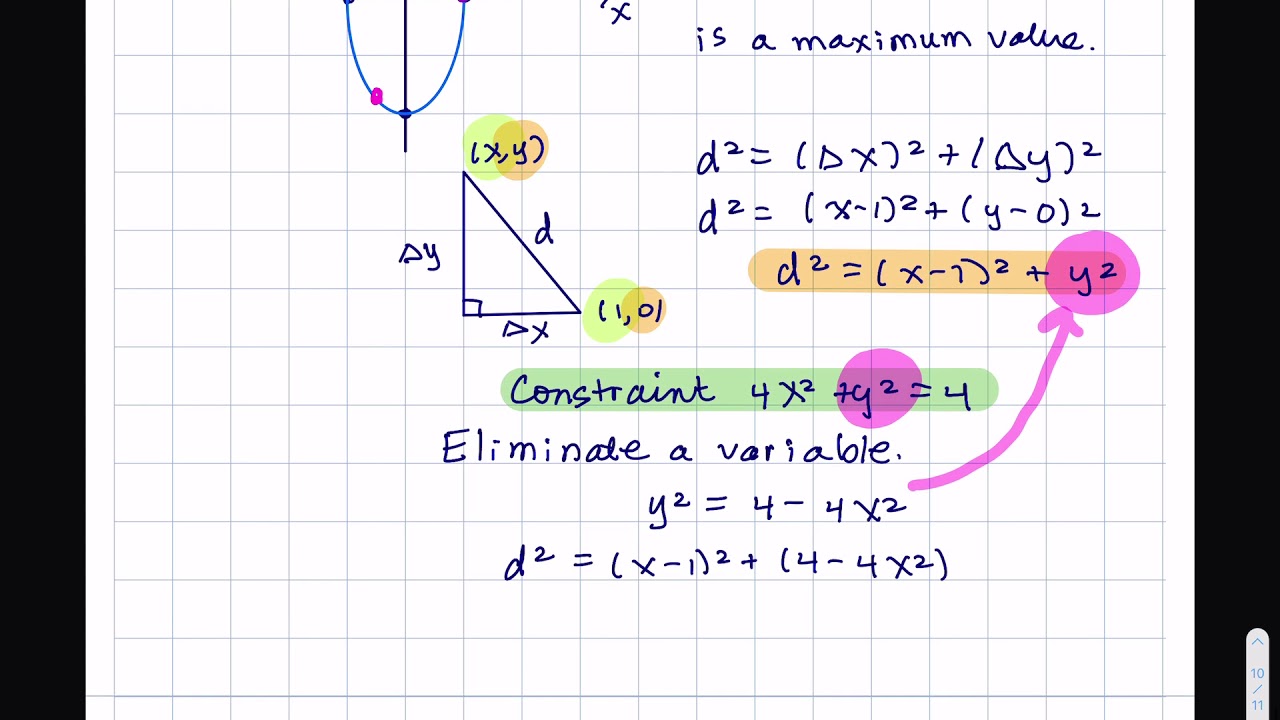 x
is a maximum value.
(x,y)
d² = (Δx)² + (Δy)²
d
d² = (x-1)² + (y-0)²
Δy
d² = (x-1)² + y²
(1,0)
Δx
Constraint 4x² + y² = 4
Eliminate a variable.
y² = 4 - 4x²
d² = (x-1)² + (4 - 4x²)
10
/
11